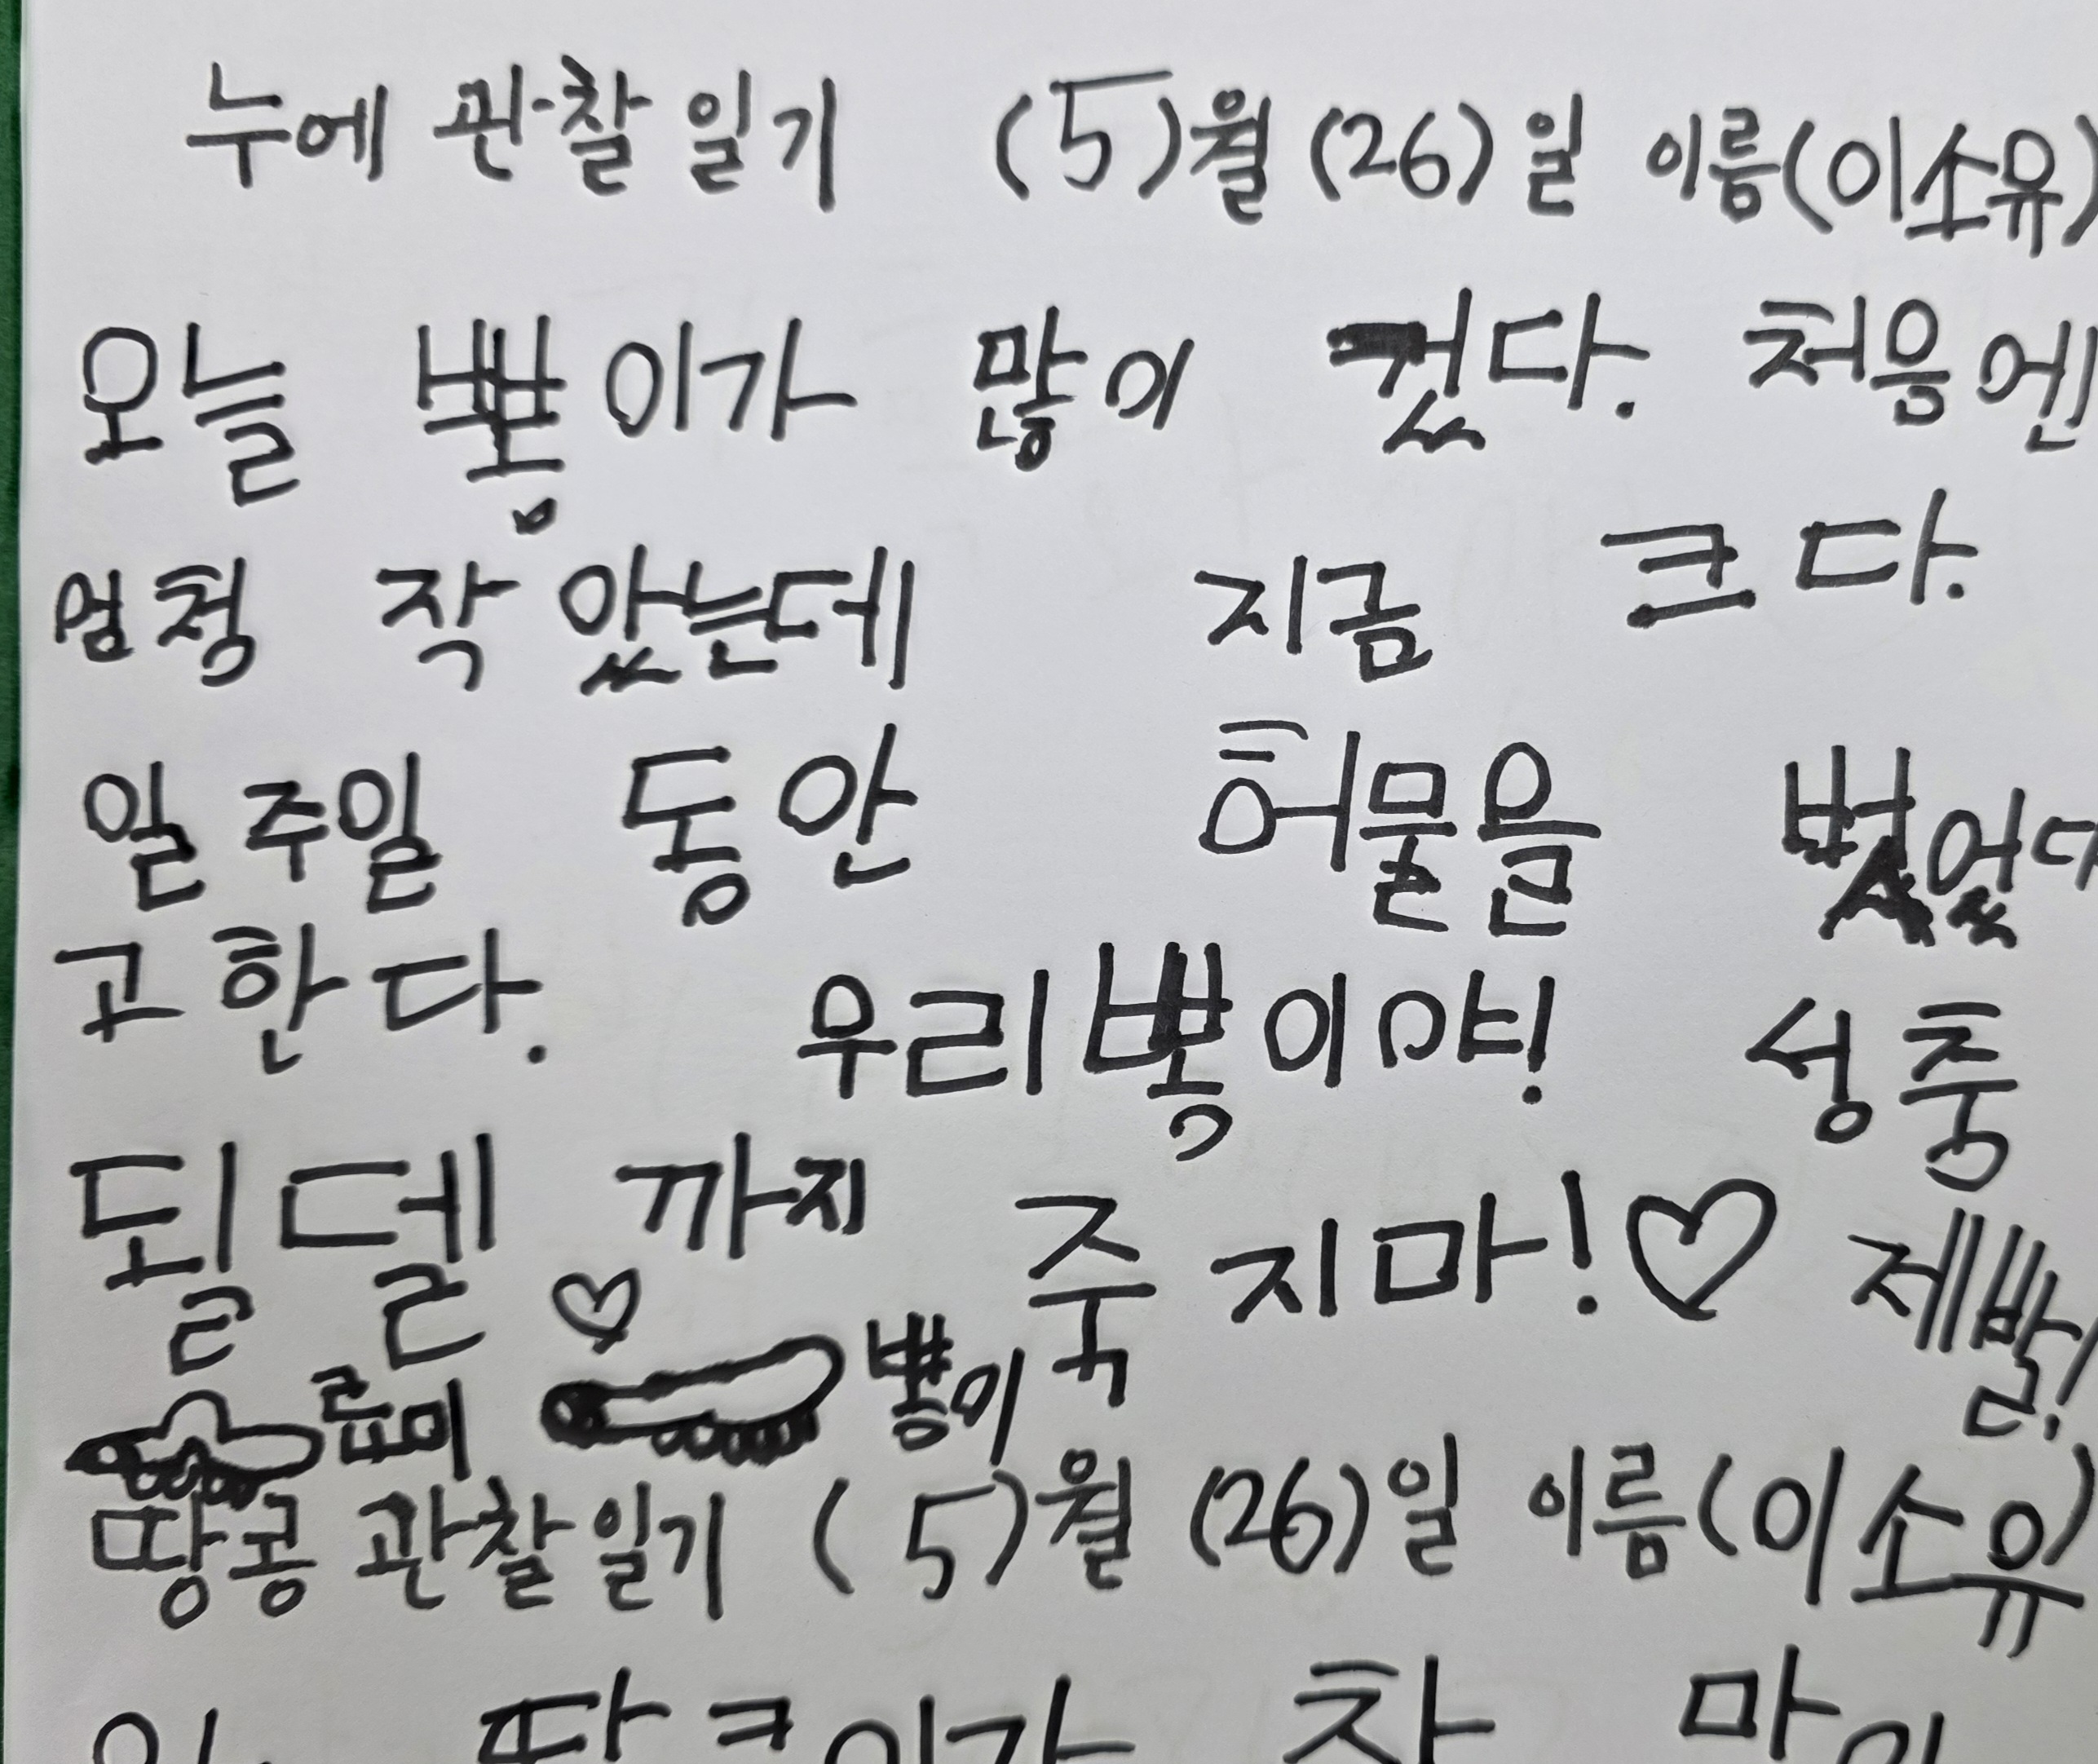 누에 관찰일기 (5)월 (26)일 이름(이소유)
오늘 뽕이가 많이 컸다. 처음엔
엄청 작았는데 지금 크다.
일주일 동안 허물을 벘었다
고한다. 우리뽕이야! 성충
될델 까지 죽지마!♡ 제발!
♡
뽕이
땅콩 관찰일기 (5)월 (26)일 이름(이소유)